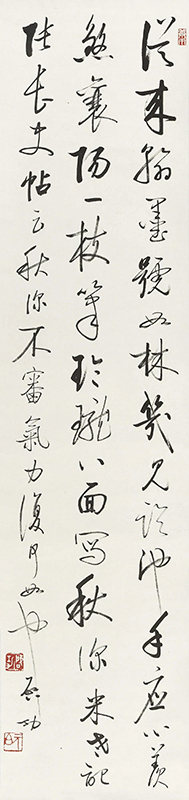 從来翰墨號如林幾見臨池手應心羨
煞襄陽一枝筆玲瓏八面寫秋深米老記
張長史帖云秋深不審氣力復何如也啟功